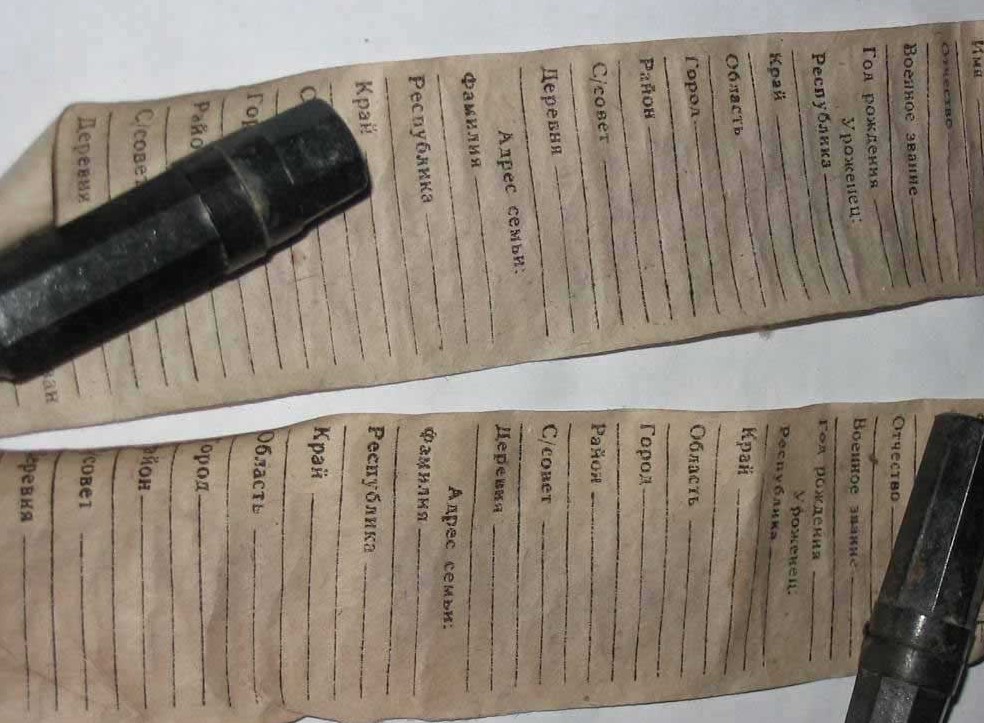 Имя
Отчество
Военное звание
Год рождения
Уроженец:
Республика
Край
Область
Город
Район
С/совет
Деревня
Адрес семьи:
Фамилия
Республика
Край
С/совет
Деревня
Отчество
Военное звание
Год рождения
Уроженец:
Республика
Край
Область
Город
Район
С/совет
Деревня
Адрес семьи:
Фамилия
Республика
Край
Область
ород
айон
совет
ревня